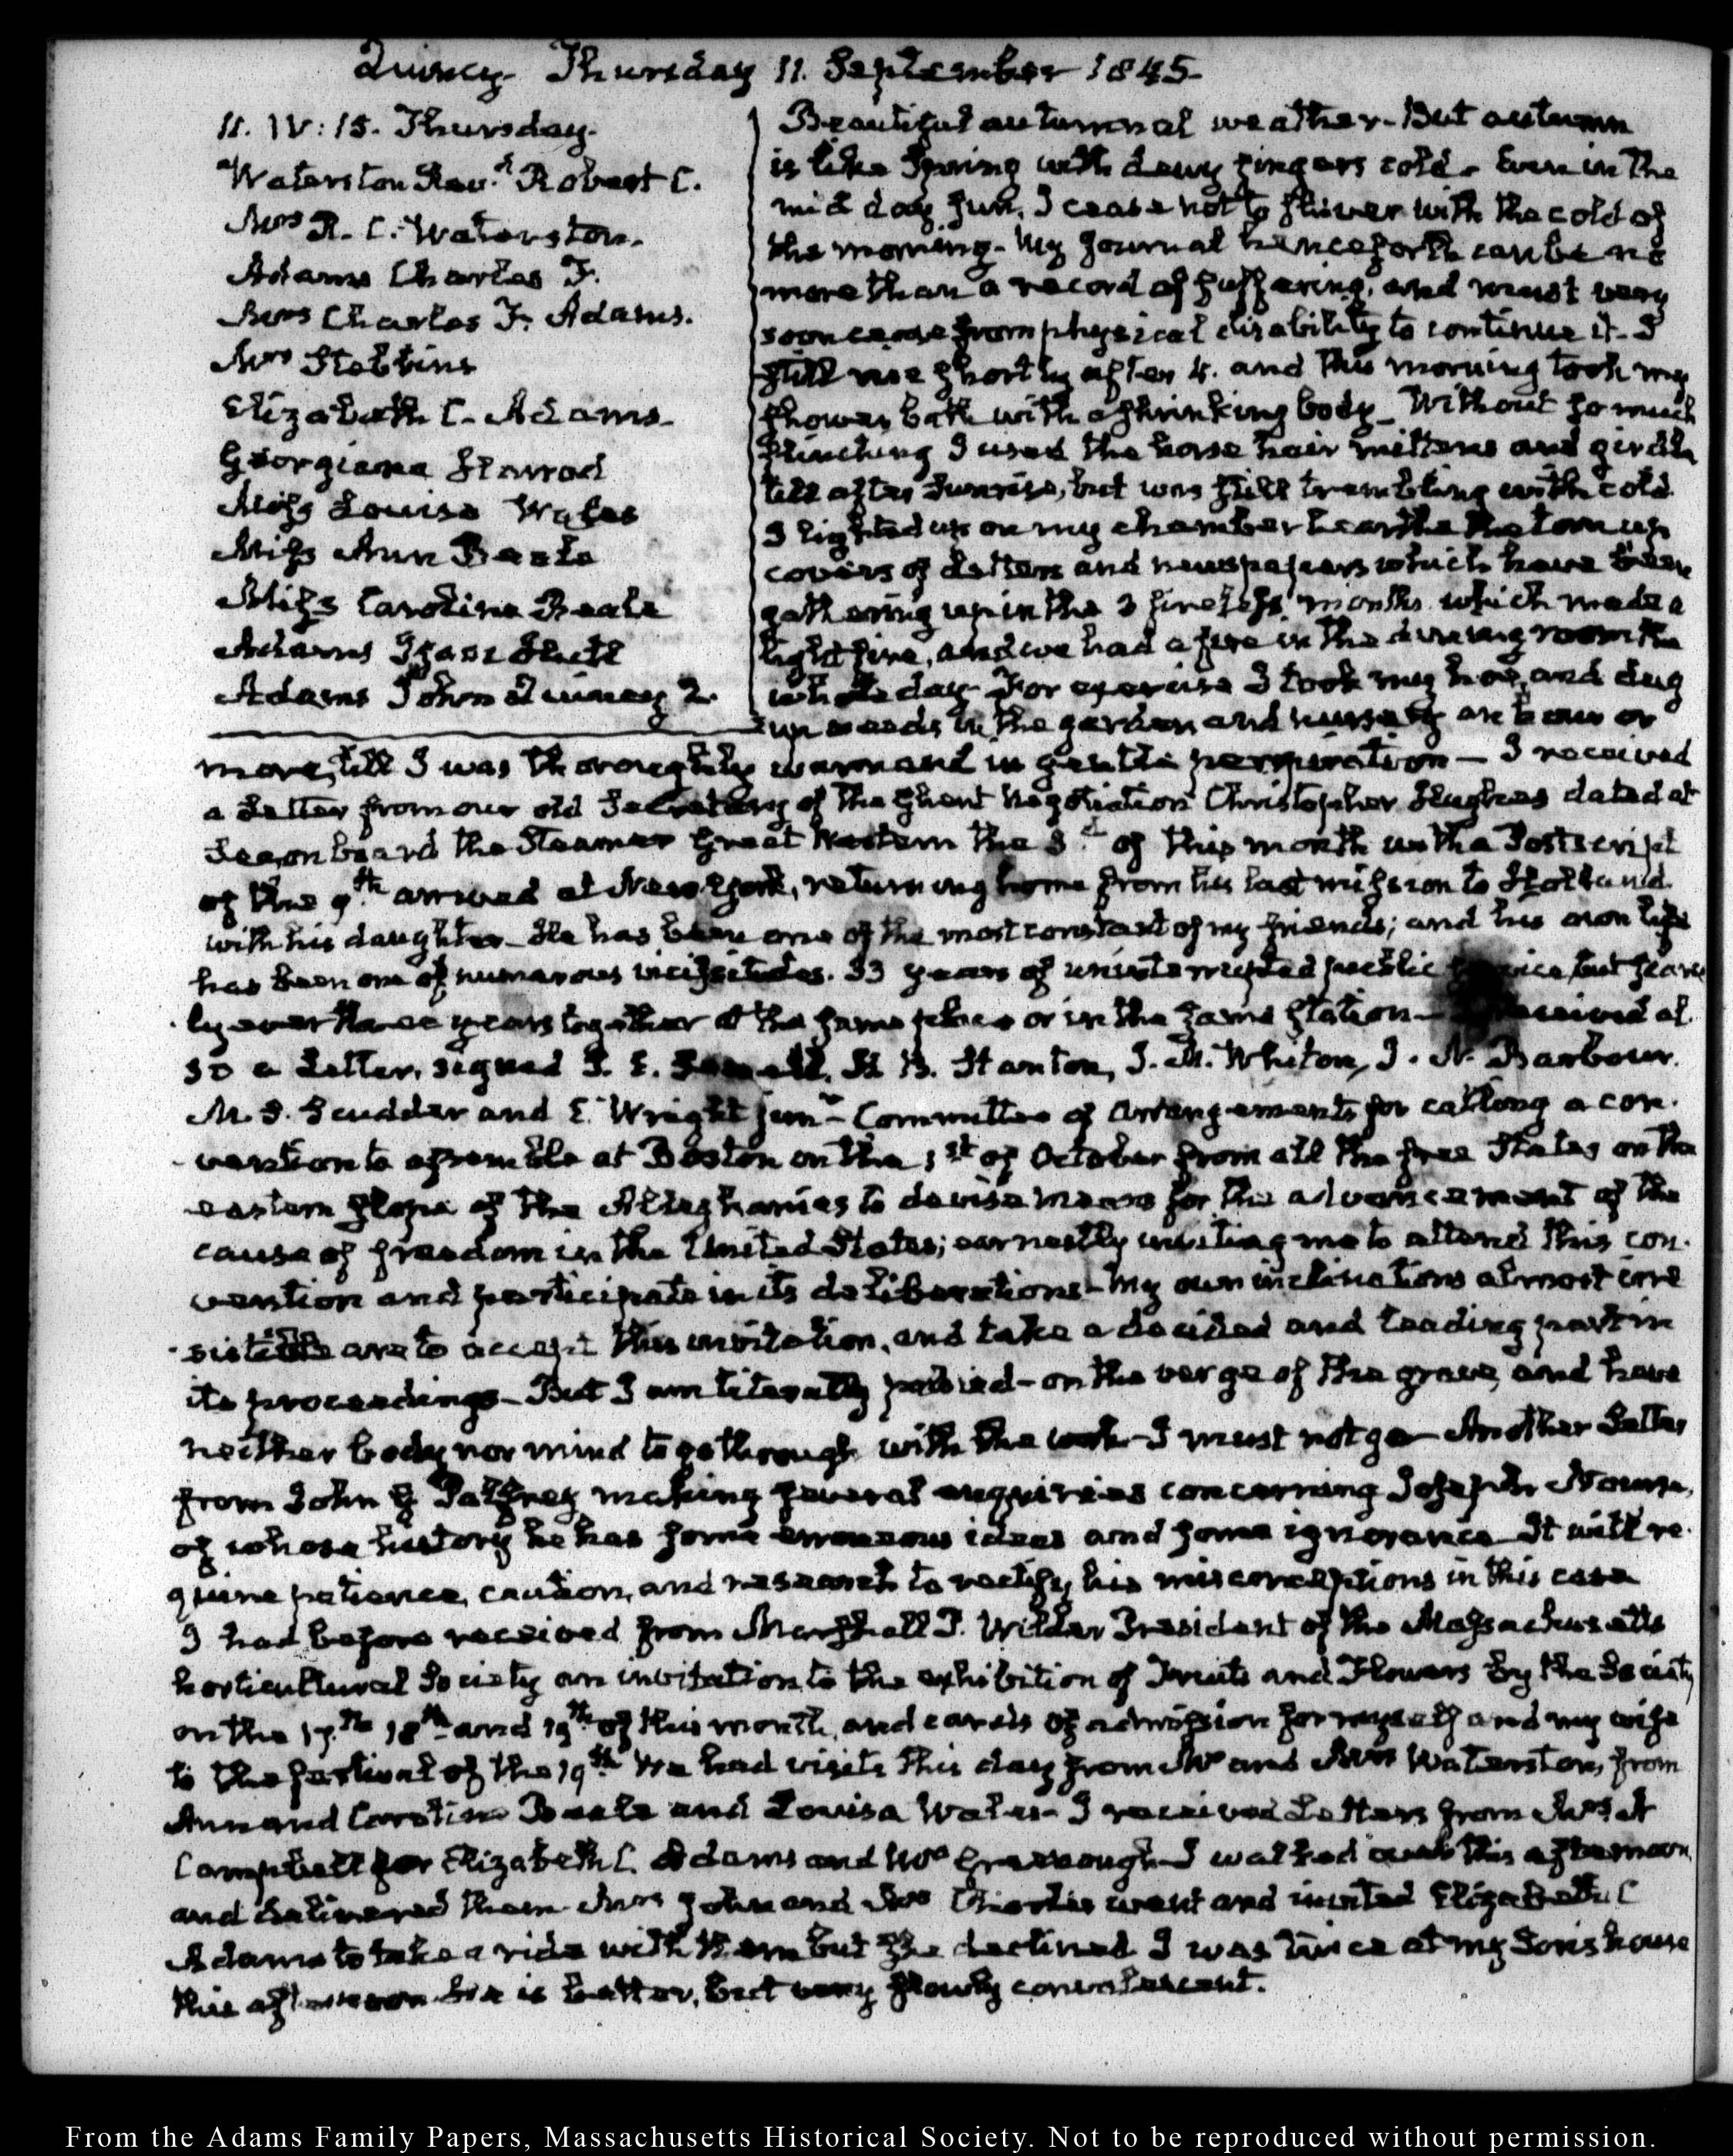 Quincy Thursday 11. September 1845
11. IV: 15. Thursday.
Waterston Rev.d Robert C.
Mrs R. C. Waterston.
Adams Charles F.
Mrs Charles F. Adams.
Mrs Stebbins
Elizabeth C. Adams.
Georgiana
Miss Louisa Wales
Miss Ann Beale
Miss Caroline Beale
Adams Isaac Hull
Adams John Quincy 2.
Beautiful autumnal weather- But autumn
is like Spring with dewy fingers cold. Even in the
mid day Sun, I cease not to shiver with the cold of
the morning- My Journal henceforth can be no
more than a record of suffering, and must very
soon cease from physical disability to continue it- I
still rise shortly after 4. and this morning took my
shower bath with a shrinking body- Without so much
flinching I used the horse hair mittens and girdle
till after Sunrise, but was still trembling with cold
I lighted up on my chamber hearth the torn up
covers of Letters and newspapers which have been
gathering up in the 3 fireless months which made a
light fire, and we had a fire in the dining room the
whole day- For exercise I took my hoe, and dug
up weeds in the garden and nursery an hour or
more, till I was thoroughly warm and in gentle perspiration — I received
a Letter from our old Secretary of the Ghent Negotiation Christopher Hughes dated at
Sea, on board the Steamer Great Western the 3d of this month with a Postscript
of the 9th arrived at New York, returning home from his last mission to Holland
with his daughter- He has been one of the most constant of my friends; and his own life
has been one of numerous vicissitudes. 33 years of uninterrupted public service, but scarce
ly ever three years together at the same place or in the same Station- I received al
so a Letter, signed H. B. Stanton, J. M. Whiton, J. N. Barbour.
M. S. Scudder and E. Wright junr- Committee of Arrangements for calling a con-
vention to assemble at Boston on the 1st of October from all the free States on the
eastern slope of the Alleghanies to devise means for the advancement of the
cause of freedom in the United States; earnestly inviting me to attend this con-
vention and participate in its deliberations- My own inclinations almost irre
sistible are to accept this invitation, and take a decided and leading part in
its proceedings- But I am literally palsied- on the verge of the grave, and have
neither body nor mind to go through with the work- I must not go- Another Letter
from John G Palfrey making several enquiries concerning Joseph Nourse,
of whose history he has some erroneous ideas and some ignorance- It will re-
quire patience, caution, and research to rectify his misconceptions in this case
I had before received from Marshall P. Wilder President of the Massachusetts
horticultural Society an invitation to the exhibition of Fruits and Flowers by the Society
on the 17.th 18th and 19th of this month, and cards of admission for myself and my wife
to the festival of the 19th We had visits this day from Mr and Mrs Waterston, from
Ann and Caroline Beale and Louisa Wales- I received Letters from Mrs A
Campbell for Elizabeth C. Adams and Mrs Greenough- I walked out this afternoon,
and delivered them- Mrs John and Mrs Charles went and invited Elizabeth C
Adams to take a ride with them but she declined I was twice at my Sons house
this afternoon- he is better, but very slowly convalescent.
From the Adams Family Papers, Massachusetts Historical Society. Not to be reproduced without permission.